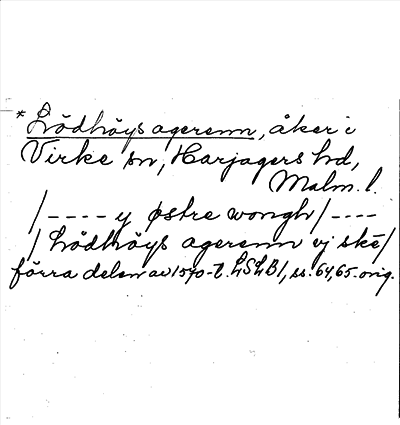 * Lödhöys agerenn, åker i
Virke sn, Harjagers hd,
Malm. l.
/---- y østre wongh/----
/ Lödhöys agerenn vj skē/
förra delen av 1570-t. LSLB1, ss. 64, 65. orig.